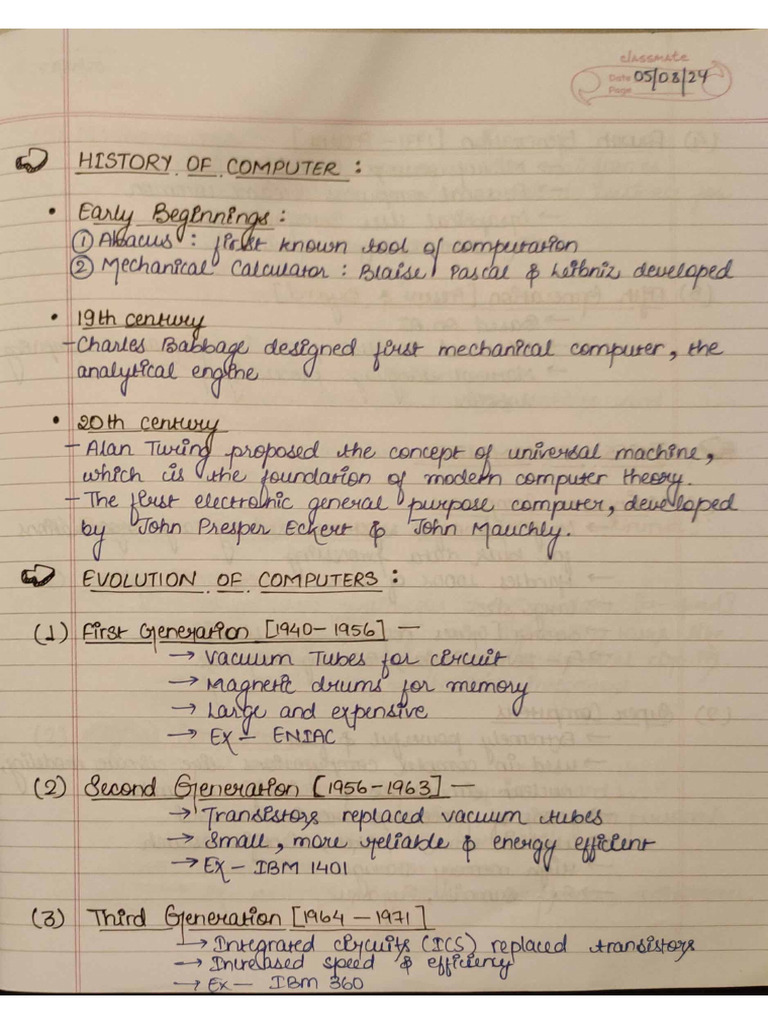 classmate
Date 05/08/24
Page
HISTORY OF COMPUTER :
• Early Beginnings :
① Abacus : first known tool of computation
② Mechanical Calculator : Blaise Pascal & Leibniz developed
• 19th century
- Charles Babbage designed first mechanical computer, the
analytical engine
• 20th century
- Alan Turing proposed the concept of universal machine,
which is the foundation of modern computer theory.
- The first electronic general purpose computer, developed
by John Presper Eckert & John Mauchly.
EVOLUTION OF COMPUTERS :
(1) First Generation [1940-1956] —
→ Vacuum Tubes for circuit
→ Magnetic drums for memory
→ Large and expensive
→ Ex - ENIAC
(2) Second Generation [1956-1963] —
→ Transistors replaced vacuum tubes
→ Small, more reliable & energy efficient
→ Ex - IBM 1401
(3) Third Generation [1964 - 1971]
→ Integrated circuits (ICS) replaced transistors
→ Increased speed & efficiency
→ Ex - IBM 360